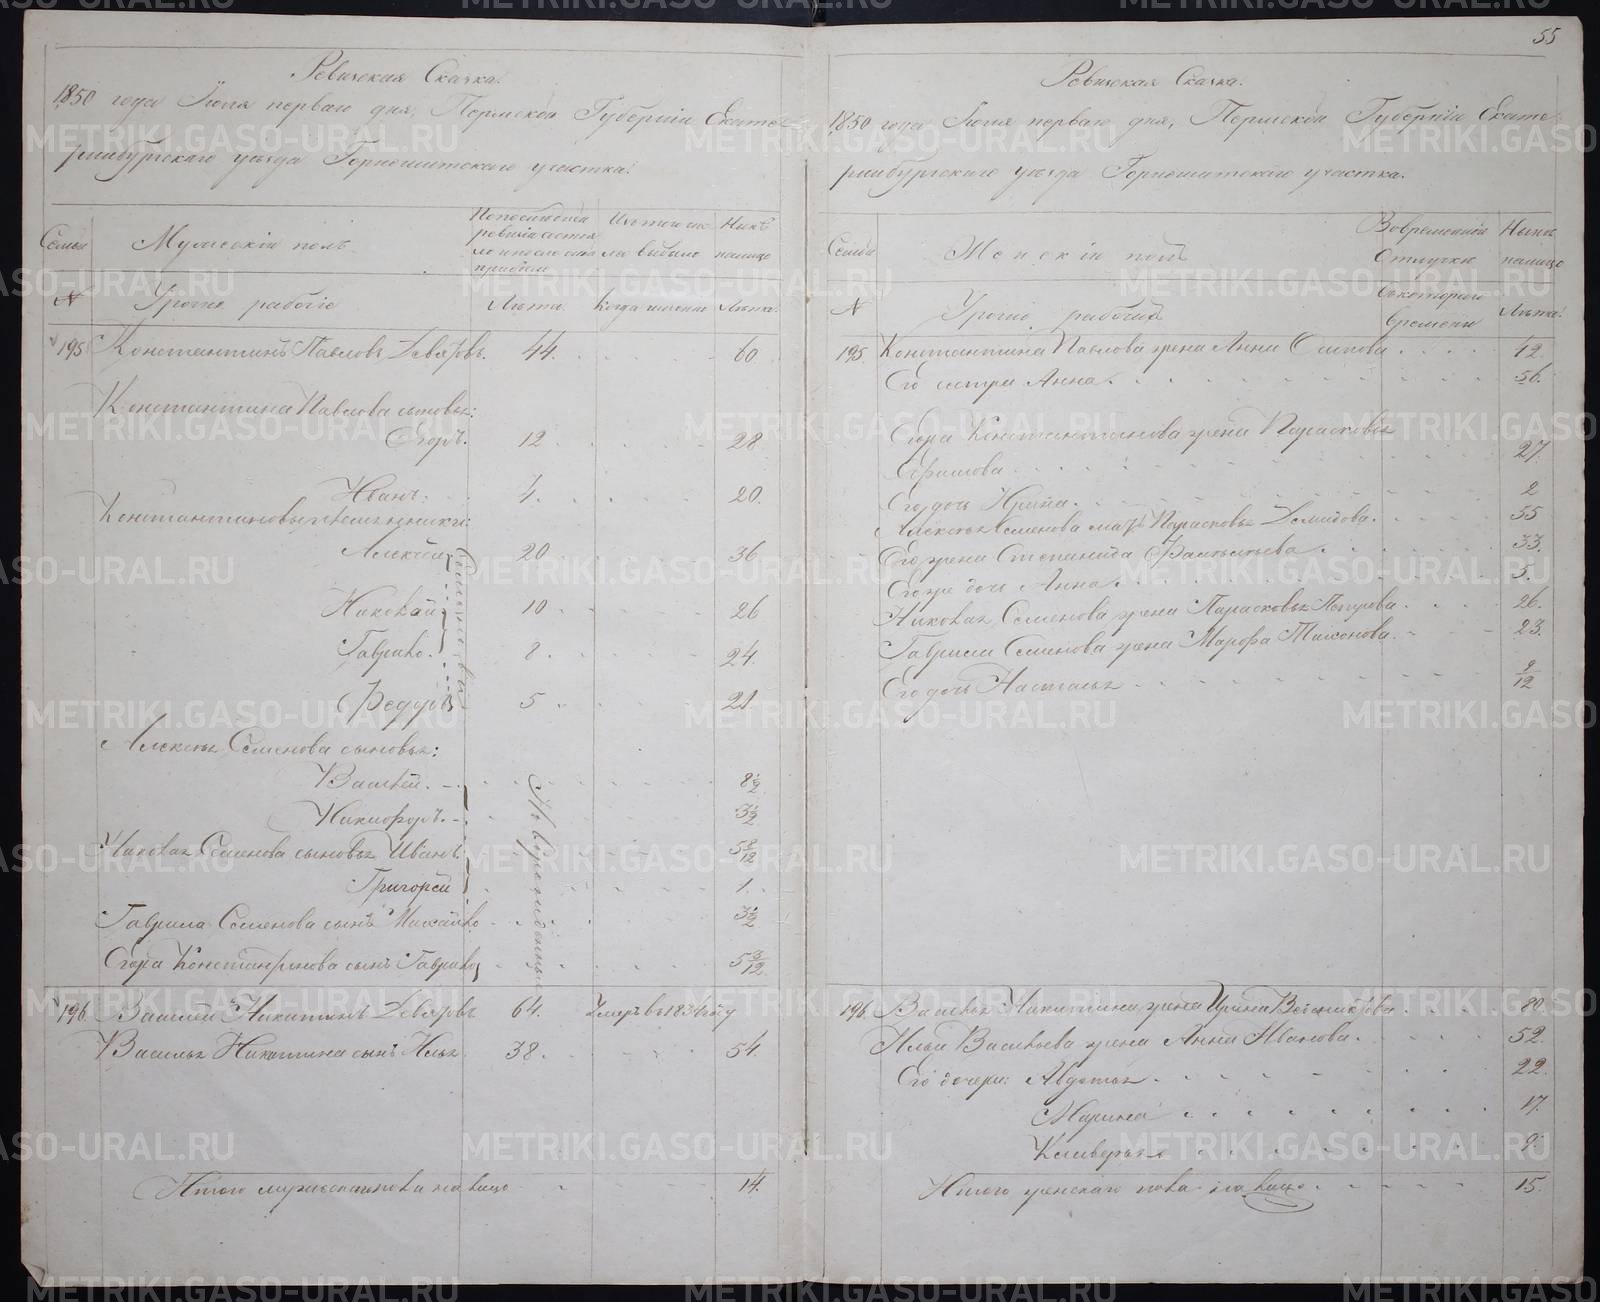 55
Ревизская Сказка.
1850 года Іюля перваго дня, Пермской Губерніи Екате-
ринбургскаго уезда Горнощитскаго участка.
Семьи
Мужескій полъ
По последней
ревизіи состоя
ло и после она
прибыло
Изъ того чи
сла выбыло
Ныне
налицо
№
Урочно рабочіе
Лета
Когда именно
Лета
195 Константинъ Павловъ Девятовъ 44. 60
Константина Павлова сыновья:
Егоръ. 12 28
Иванъ. 4. 20.
Константиновы племянники:
Алексей 20 36
Николай 10 26
Гаврило. 8. 24.
Федоръ 5 21
Семеновы
Алексея Семенова сыновья:
Василей. 8½
Никифоръ. 3½
Николая Семенова сыновья Иванъ 5 8/12
Григорей 1.
Гаврила Семенова сынъ Михайло 3½
Егора Константинова сынъ Гаврило 5 3/12
Новорожденные
196. Василей Никитинъ Девятовъ 64. Умеръ в 1834 году
Василья Никитина сынъ Илья 38. 54.
Итого мужескаго пола налицо 14.
Ревизская Сказка.
1850 года Іюля перваго дня, Пермской Губерніи Екате-
ринбургскаго уезда Горнощитскаго участка.
Семьи
Женскій полъ
Во временной
отлучке
Ныне
налицо
№
Урочно рабочихъ
Съ котораго
времени
Лета
195. Константина Павлова жена Анна Осипова 42.
Его сестра Анна. 56.
Егора Константинова жена Парасковья
Ефимова 27.
Его дочь Ирина. 2
Алексея Семенова мать Парасковья Демидова. 55
Его жена Степанида Васильева 33.
Его же дочь Анна 5.
Николая Семенова жена Парасковья Петрова. 26.
Гаврила Семенова жена Марфа Тихонова. 23.
Его дочь Настасья 2/12
196. Василья Никитина жена Ирина 80.
Ильи Васильева жена Анна Иванова. 52.
Его дочери: Авдотья. 22.
Марина 17.
9.
Итого женскаго пола налицо 15.
METRIKI.GASO-URAL.RU